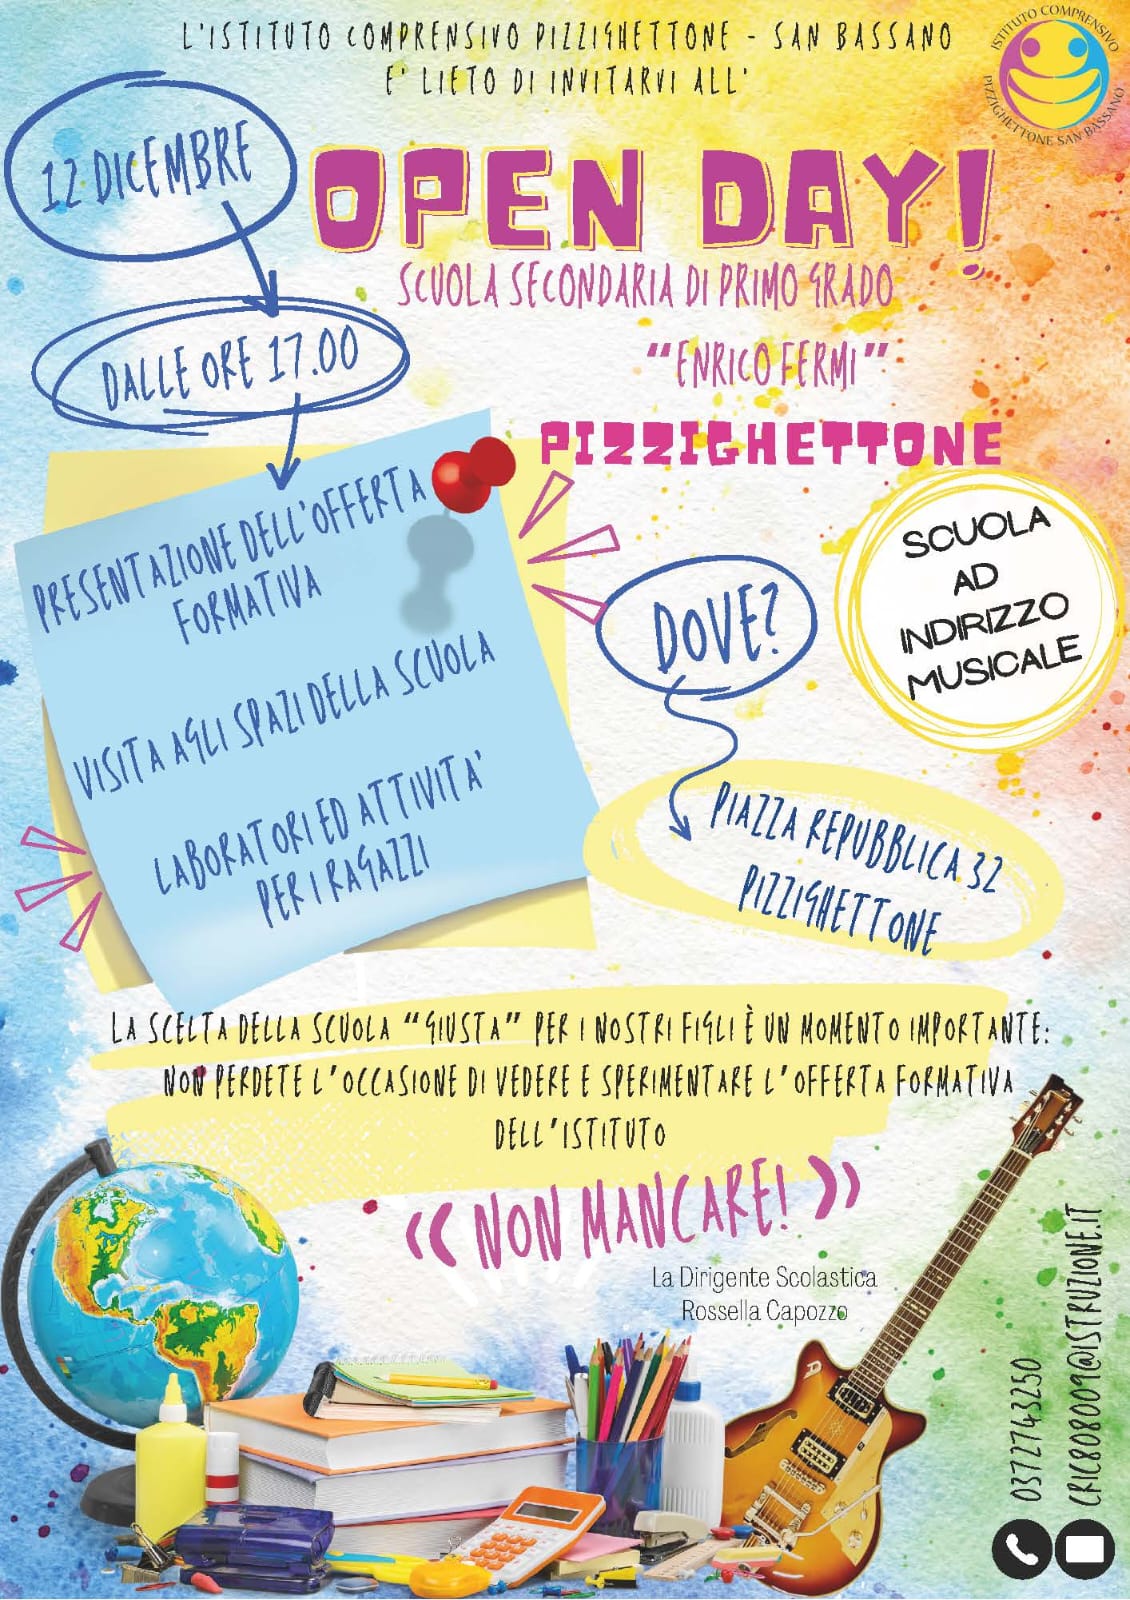 L'ISTITUTO COMPRENSIVO PIZZIGHETTONE - SAN BASSANO
E' LIETO DI INVITARVI ALL'
ISTITUTO COMPRENSIVO
PIZZIGHETTONE SAN BASSANO
12 DICEMBRE
OPEN DAY!
SCUOLA SECONDARIA DI PRIMO GRADO
"ENRICO FERMI"
PIZZIGHETTONE
DALLE ORE 17.00
PRESENTAZIONE DELL'OFFERTA
FORMATIVA
VISITA AGLI SPAZI DELLA SCUOLA
LABORATORI ED ATTIVITA'
PER I RAGAZZI
SCUOLA
AD
INDIRIZZO
MUSICALE
DOVE?
PIAZZA REPUBBLICA 32
PIZZIGHETTONE
LA SCELTA DELLA SCUOLA "GIUSTA" PER I NOSTRI FIGLI È UN MOMENTO IMPORTANTE:
NON PERDETE L'OCCASIONE DI VEDERE E SPERIMENTARE L'OFFERTA FORMATIVA
DELL'ISTITUTO
« NON MANCARE! »
La Dirigente Scolastica
Rossella Capozzo
0372743250
CRIC808009@ISTRUZIONE.IT